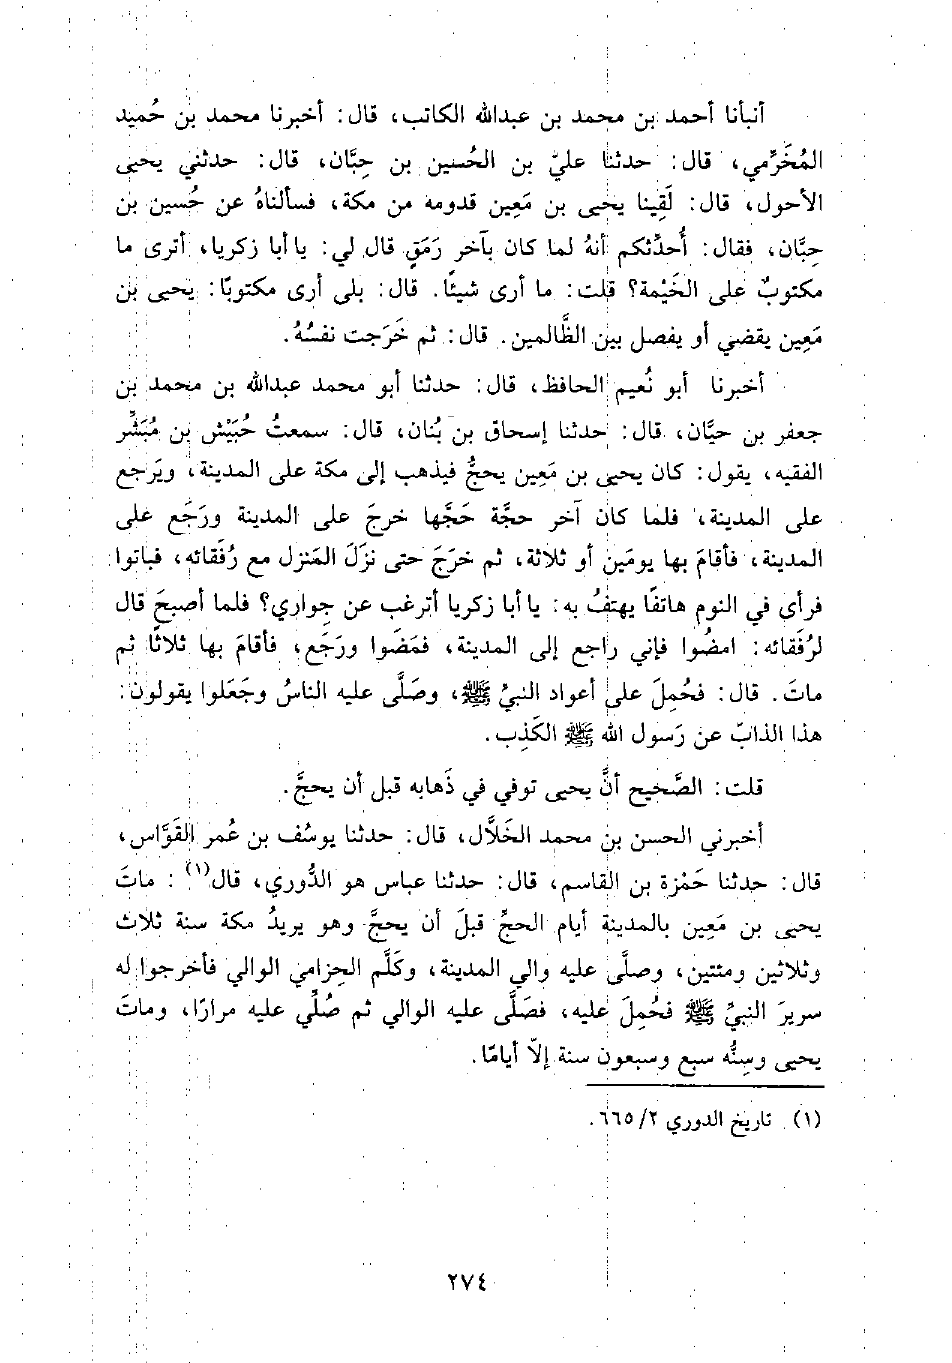 أنبأنا أحمد بن محمد بن عبدالله الكاتب، قال: أخبرنا محمد بن حُميد
المُخَرِّمي، قال: حدثنا عليّ بن الحُسين بن حِبَّان، قال: حدثني يحيى
الأحول، قال: لَقِينا يحيى بن مَعِين قدومه من مكة، فسألناهُ عن حُسين بن
حِبَّان، فقال: أُحدِّثكم أنهُ لما كان بآخر رَمَقٍ قال لي: يا أبا زكريا، أترى ما
مكتوبٌ على الخَيْمة؟ قلت: ما أرى شيئًا. قال: بلى أرى مكتوبًا: يحيى بن
مَعِين يقضي أو يفصل بين الظَّالمين. قال: ثم خَرَجت نفسُهُ.
أخبرنا أبو نُعيم الحافظ، قال: حدثنا أبو محمد عبدالله بن محمد بن
جعفر بن حيَّان، قال: حدثنا إسحاق بن بُنان، قال: سمعتُ حُبَيْش بن مُبَشِّر
الفقيه، يقول: كان يحيى بن مَعِين يحجُّ فيذهب إلى مكة على المدينة، ويَرجع
على المدينة، فلما كان آخر حجَّة حَجَّها خرجَ على المدينة ورَجَع على
المدينة، فأقامَ بها يومَين أو ثلاثة، ثم خرَجَ حتى نزَلَ المَنزل مع رُفَقائه، فباتوا
فرأى في النوم هاتفًا يهتفُ به: يا أبا زكريا أترغب عن جواري؟ فلما أصبحَ قال
لرُفَقائه: امضُوا فإني راجع إلى المدينة، فمَضَوا ورَجَع، فأقامَ بها ثلاثًا ثم
ماتَ. قال: فحُمِلَ على أعواد النبيِّ ﷺ، وصَلَّى عليه الناسُ وجَعَلوا يقولون:
هذا الذابّ عن رَسول الله ﷺ الكَذِب.
قلت: الصَّحيح أنَّ يحيى توفي في ذَهابه قبل أن يحجَّ.
أخبرني الحسن بن محمد الخَلَّال، قال: حدثنا يوسُف بن عُمر القَوَّاس،
قال: حدثنا حَمْزة بن القاسم، قال: حدثنا عباس هو الدُّوري، قال(١): ماتَ
يحيى بن مَعِين بالمدينة أيام الحجِّ قبلَ أن يحجَّ وهو يريدُ مكة سنة ثلاث
وثلاثين ومئتين، وصلَّى عليه والي المدينة، وكَلَّم الحِزامي الوالي فأخرجوا له
سريرَ النبيِّ ﷺ فحُمِلَ عليه، فصَلَّى عليه الوالي ثم صُلِّي عليه مرارًا، وماتَ
يحيى وسِنُّه سبع وسبعون سنة إلاّ أيامًا.
(١) تاريخ الدوري ٢/ ٦٦٥.
٢٧٤